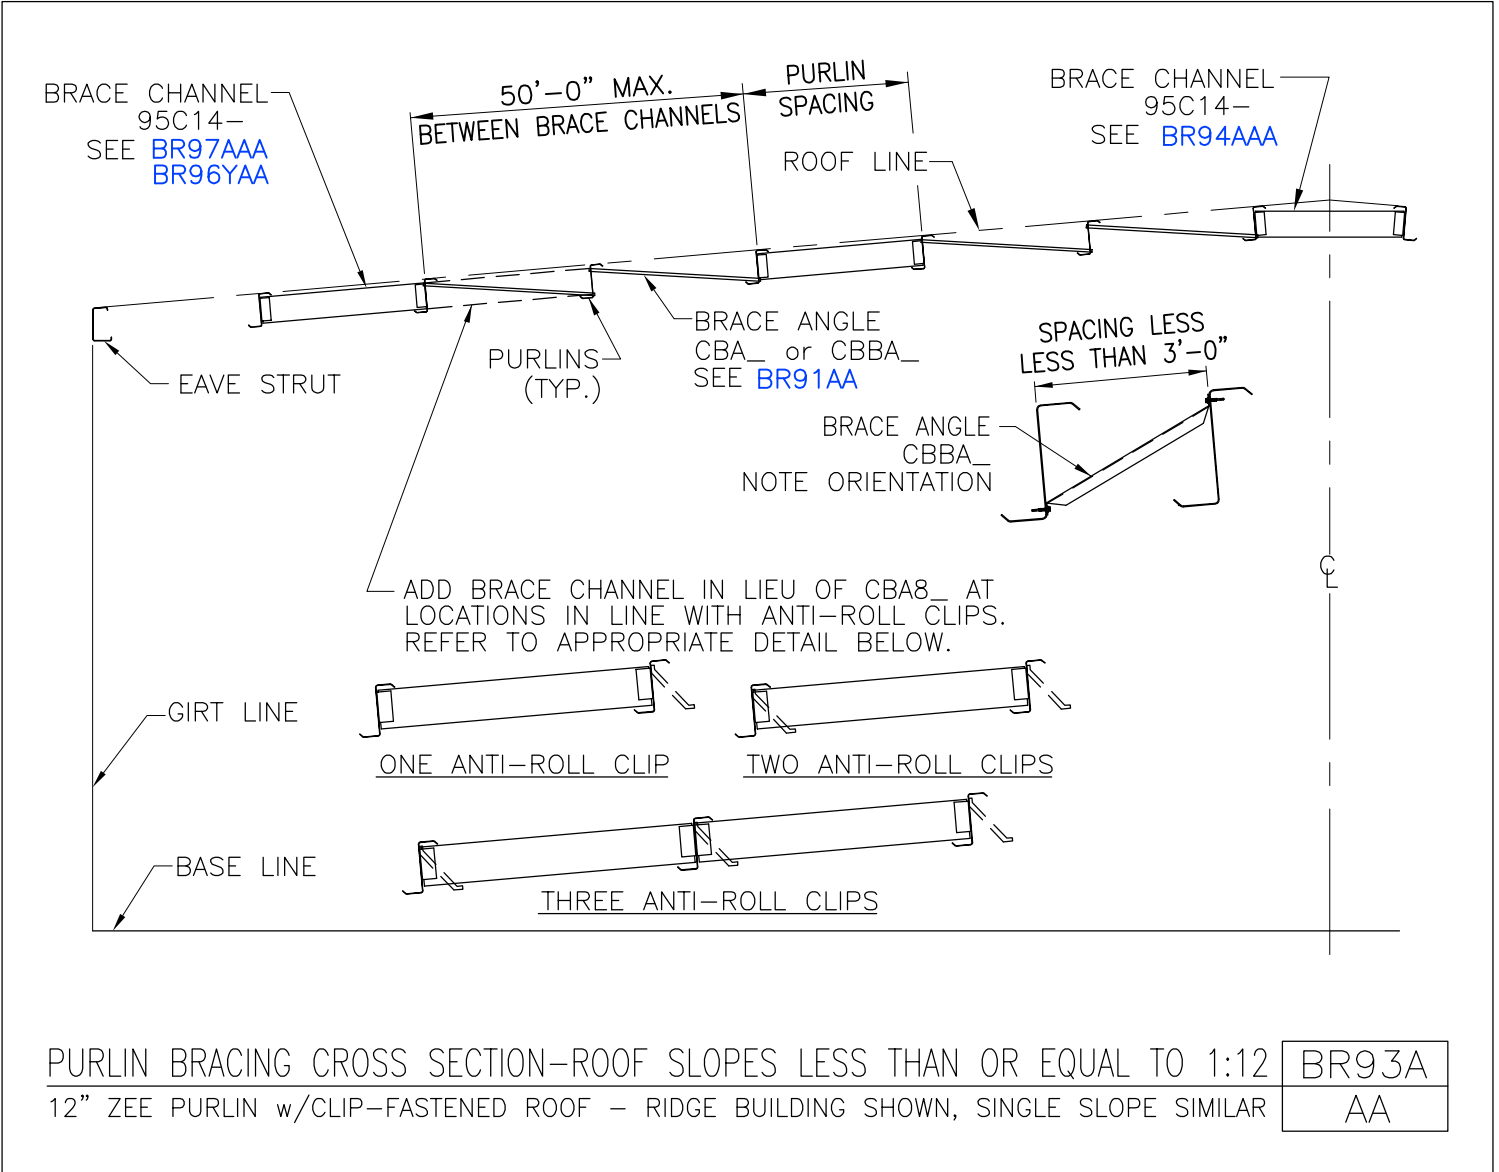 BRACE CHANNEL
95C14-
SEE BR97AAA
BR96YAA
50'-0" MAX.
BETWEEN BRACE CHANNELS
PURLIN
SPACING
ROOF LINE
BRACE CHANNEL
95C14-
SEE BR94AAA
EAVE STRUT
PURLINS
(TYP.)
BRACE ANGLE
CBA_ or CBBA_
SEE BR91AA
SPACING LESS
LESS THAN 3'-0"
BRACE ANGLE
CBBA_
NOTE ORIENTATION
ADD BRACE CHANNEL IN LIEU OF CBA8_ AT
LOCATIONS IN LINE WITH ANTI-ROLL CLIPS.
REFER TO APPROPRIATE DETAIL BELOW.
℄
GIRT LINE
ONE ANTI-ROLL CLIP
TWO ANTI-ROLL CLIPS
BASE LINE
THREE ANTI-ROLL CLIPS
PURLIN BRACING CROSS SECTION-ROOF SLOPES LESS THAN OR EQUAL TO 1:12
BR93A
12" ZEE PURLIN w/CLIP-FASTENED ROOF - RIDGE BUILDING SHOWN, SINGLE SLOPE SIMILAR
AA